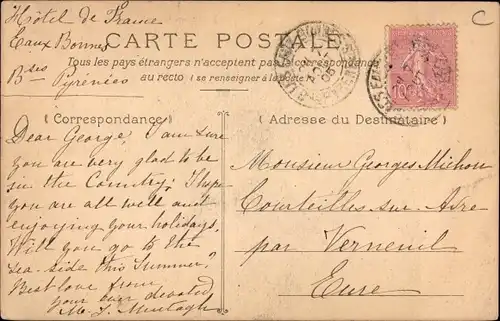 Hôtel de France
Eaux Bonnes
Bses Pyrénées
C
CARTE POSTALE
Tous les pays étrangers n'acceptent pas la correspondance
au recto (se renseigner à la Poste)
(Correspondance)
Adresse du Destinataire)
Dear George, I am sure
you are very glad to be
in the Country; I hope
you are all well and
enjoying your holidays.
Will you go to the
sea-side this Summer?
Best love from
your ever devoted
M. J.
Monsieur Georges Michon
Courteilles sur Avre
par Verneuil
Eure
10